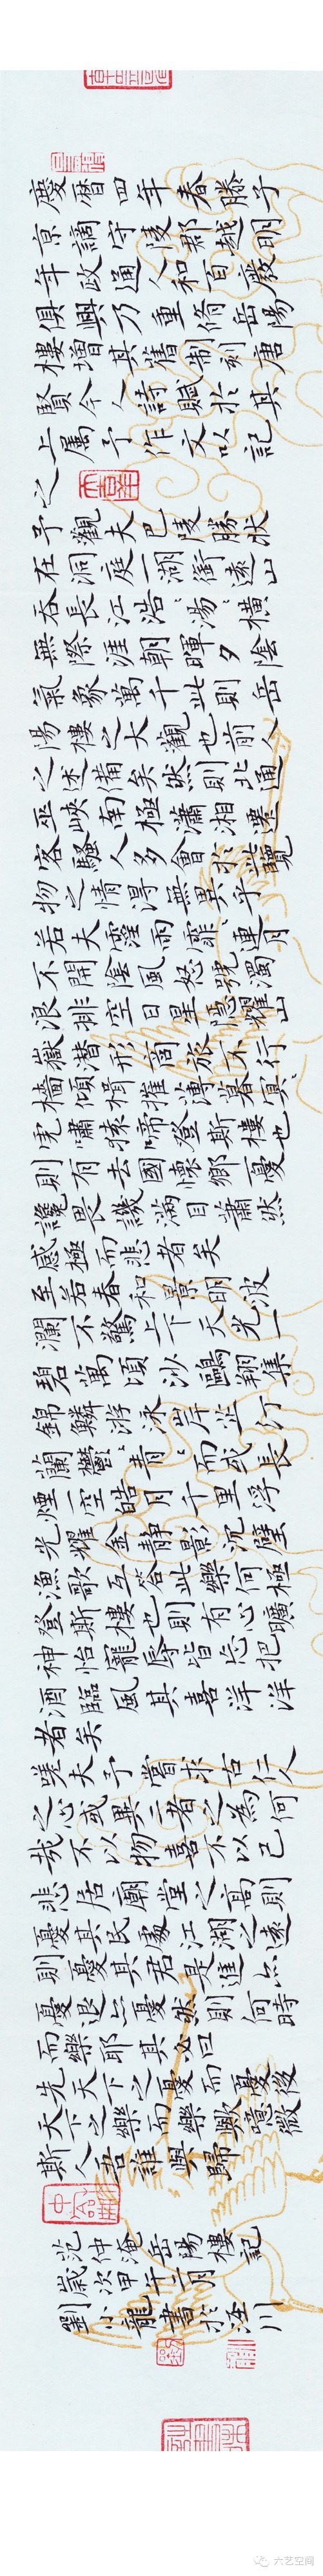 慶曆四年春滕子
京謫守陵郡越明
年政通人和百廢
俱興乃重脩岳陽
樓增其舊制刻唐
賢今人詩賦於其
上屬予作文以記
之
予觀夫巴陵勝狀
在洞庭一湖銜遠山
吞長江浩〻湯〻橫
無際涯朝暉夕陰
氣象萬千此則岳
陽樓之大觀也前人
之述備矣然則北通
巫峽南極瀟湘遷
客騷人多會於覽
物之情得無異乎
若夫霪雨霏〻連月
不開陰風怒號濁
浪排空日星隱耀山
嶽潛形商旅不行
檣傾楫摧薄暮冥〻
虎嘯猿啼登斯樓也
則有去國懷鄉憂
讒畏譏滿目蕭然
感極而悲者矣
至若春和景明波
瀾不驚上下天光一
碧萬頃沙鷗翔集
錦鱗游泳岸芷汀
蘭鬱〻青〻而或長
煙一空皓月千里浮
光耀金靜影沉璧
漁歌互答此樂何極
登斯樓也則有心曠
神怡寵辱皆忘把
酒臨風其喜洋洋
者矣
嗟夫予嘗求古仁人
之心或異二者之為何
哉不以物喜不以己
悲居廟堂之高則
憂其民處江湖之遠
則憂其君是進亦
憂退亦憂然則何時
而樂耶其必曰
先天下之憂而憂後
天下之樂而樂歟噫微
斯人吾誰與歸
范仲淹岳陽樓記
歲次甲午月
劉小龍書於川
六艺空间